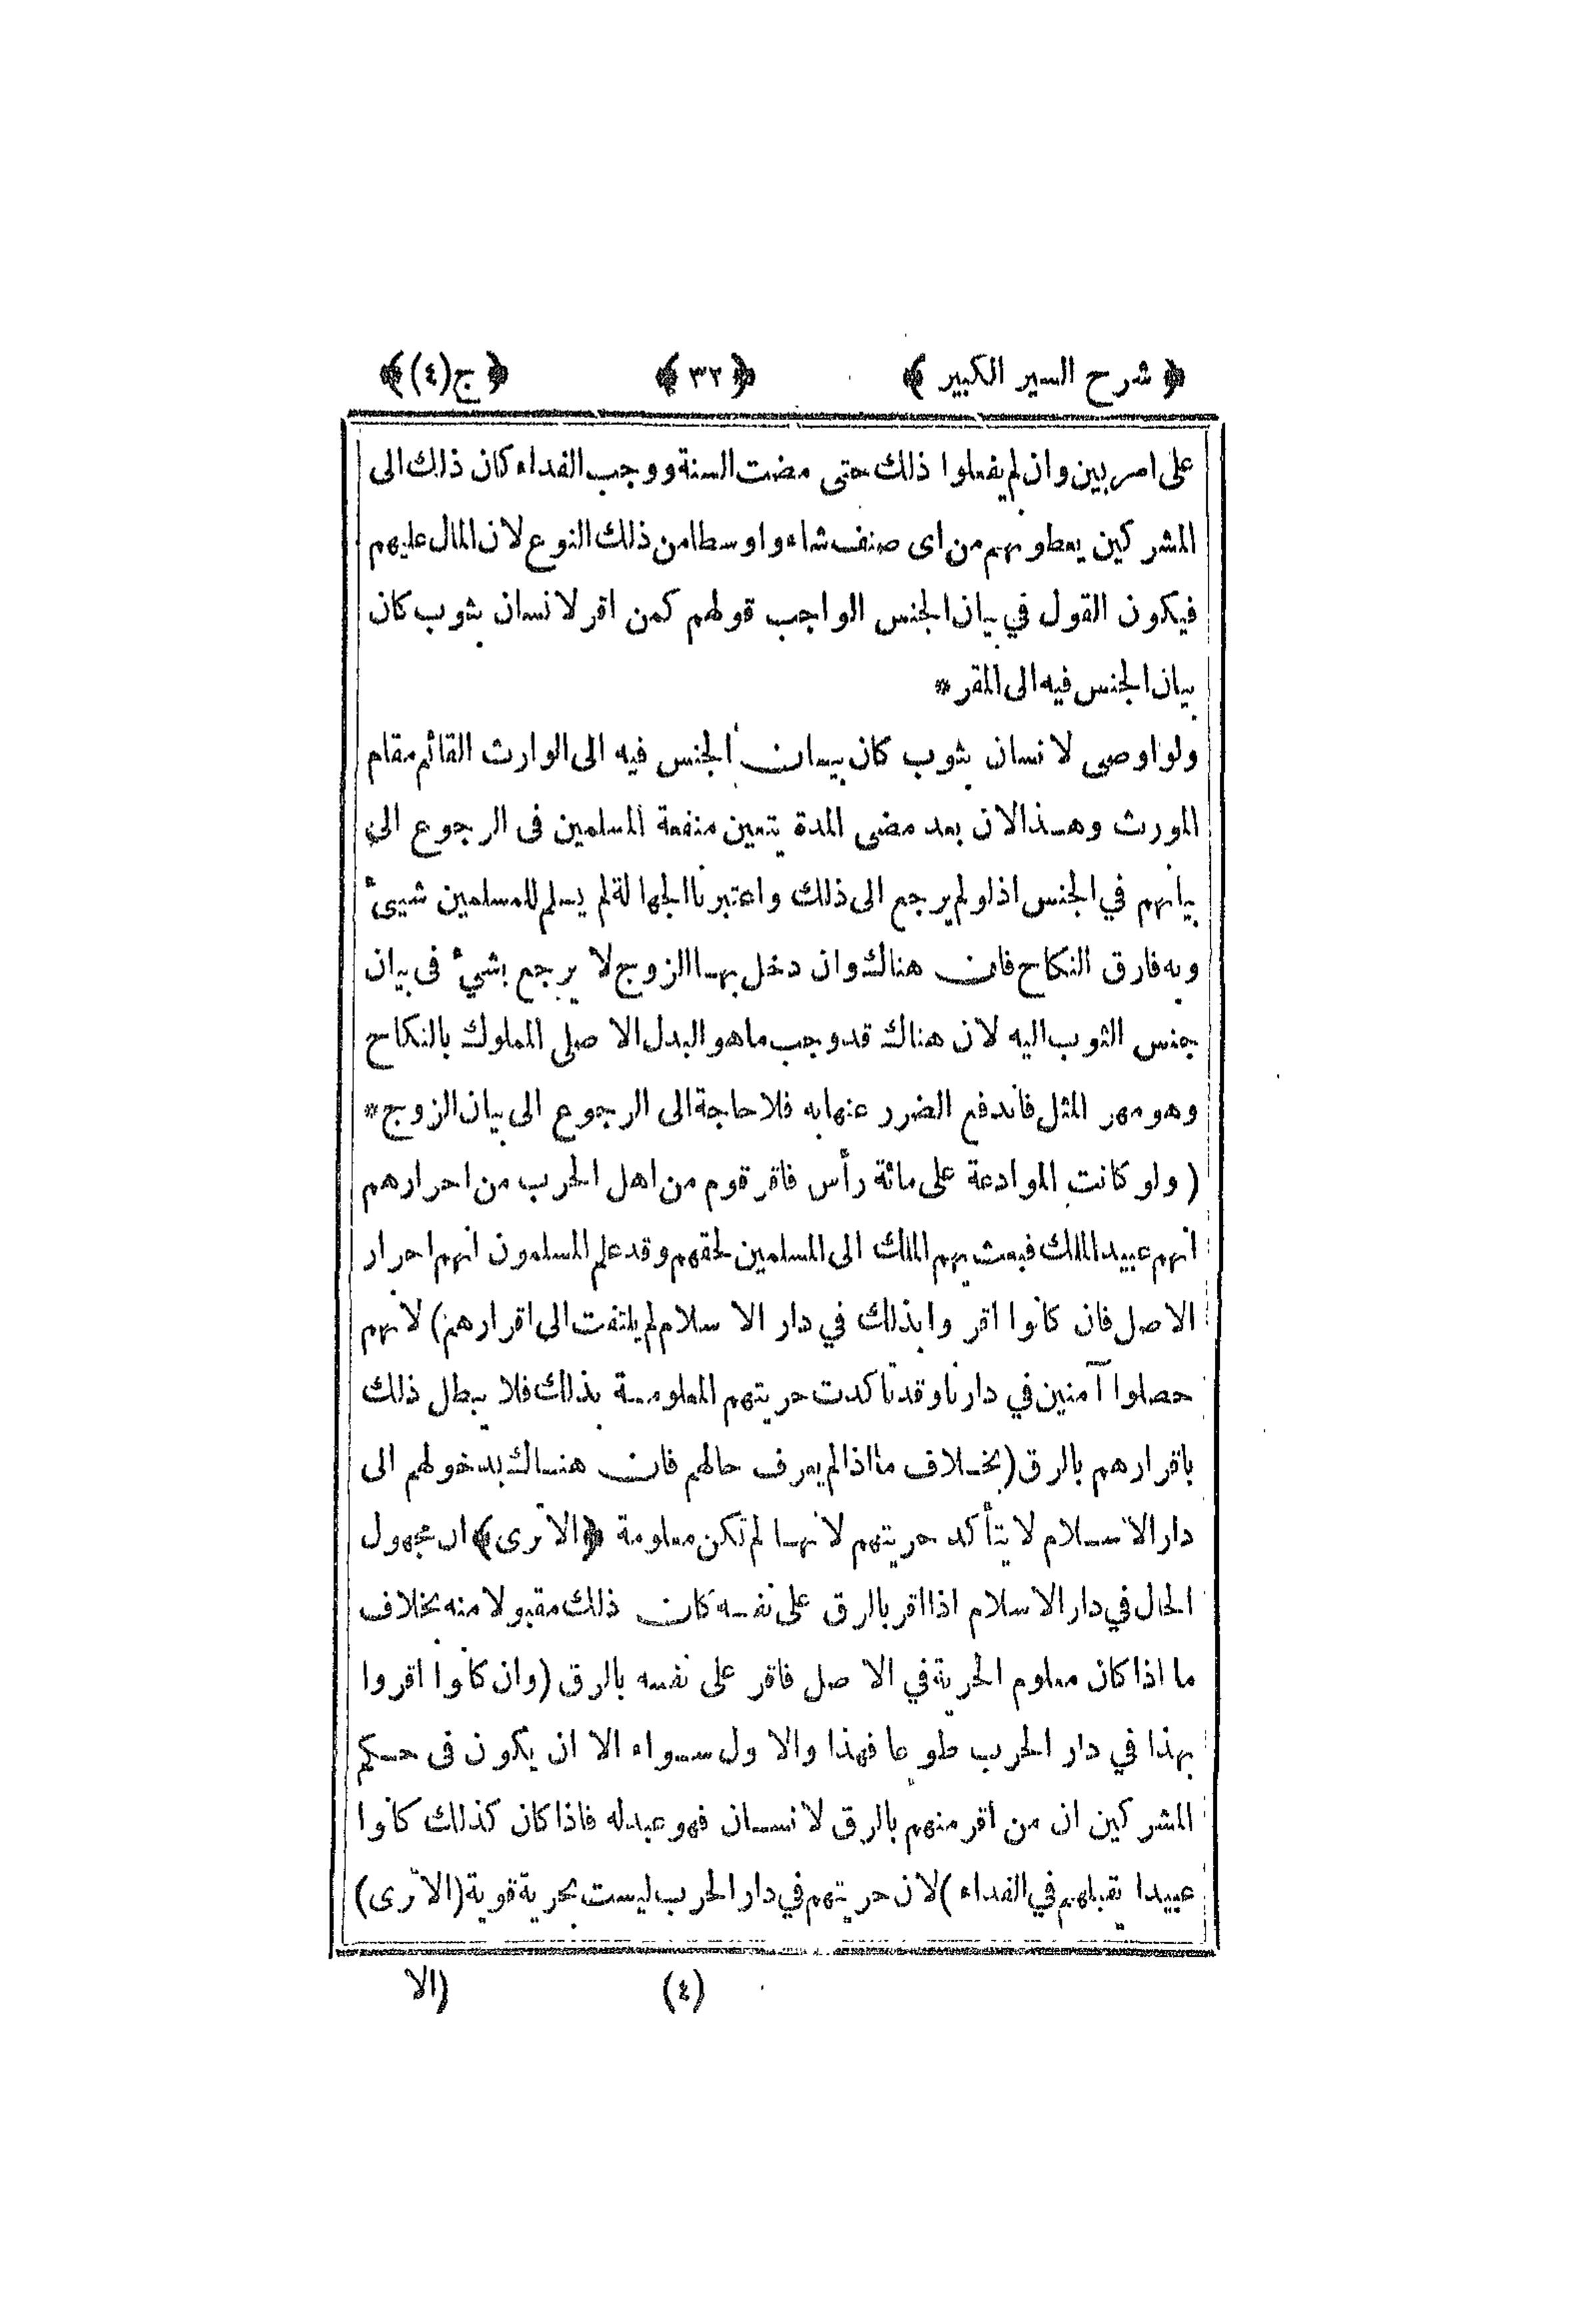 ﴿ شرح السير الكبير ﴾ ﴿ ٣٢ ﴾ ﴿ ج (٤) ﴾
على امر بين وان لم يفعلوا ذلك حتى مضت السنة ووجب الفداء كان ذلك الى
المشركين يعطونهم من اى صنف شاءوا وسطا من ذلك النوع لان المال عليهم
فيكون القول في بيان الجنس الواجب قولهم كمن اقر لانسان بثوب كان
بيان الجنس فيه الى المقر *
ولو اوصى لانسان بثوب كان بيان الجنس فيه الى الوارث القائم مقام
المورث وهذا لان بعد مضى المدة يتعين منفعة المسلمين فى الرجوع الى
بيانهم في الجنس اذ لو لم يرجع الى ذلك واعتبرنا الجهالة لم يسلم للمسلمين شيىٔ
وبه فارق النكاح فان هناك وان دخل بها الزوج لا يرجع بشىٔ فى بيان
جنس الثوب اليه لان هناك قد وجب ما هو البدل الاصلى المملوك بالنكاح
وهو مهر المثل فاندفع الضرر عنها به فلا حاجة الى الرجوع الى بيان الزوج *
( ولو كانت الموادعة على مائة رأس فاقر قوم من اهل الحرب من احرارهم
انهم عبيد الملك فبعث بهم الملك الى المسلمين لحقهم وقد علم المسلمون انهم احرار
الاصل فان كانوا اقروا بذلك في دار الاسلام لم يلتفت الى اقرارهم ) لانهم
حصلوا آمنين في دارنا وقد تاكدت حريتهم المعلومة بذلك فلا يبطل ذلك
باقرارهم بالرق ( بخلاف ما اذا لم يعرف حالهم فان هناك بدخولهم الى
دار الاسلام لا يتأكد حريتهم لانها لم تكن معلومة ﴿ الا ترى ﴾ ان مجهول
الحال في دار الاسلام اذا اقر بالرق على نفسه كان ذلك مقبولا منه بخلاف
ما اذا كان معلوم الحرية في الاصل فاقر على نفسه بالرق ( وان كانوا اقروا
بهذا في دار الحرب طوعا فهذا والاول سواء الا ان يكون فى حكم
المشركين ان من اقر منهم بالرق لانسان فهو عبد له فاذا كان كذلك كانوا
عبيدا يقبلهم في الفداء ) لان حريتهم في دار الحرب ليست بحرية قوية ( الا ترى )
(٤) (الا